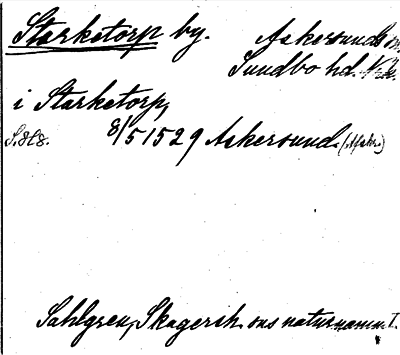 Starketorp by. Askersunds sn.
Sundbo hd. När.
i Starketorp,
S. 818. 8/5 1529 Askersund. (Afskr.)
Sahlgren, Skagersh. ons naturnamn. I.